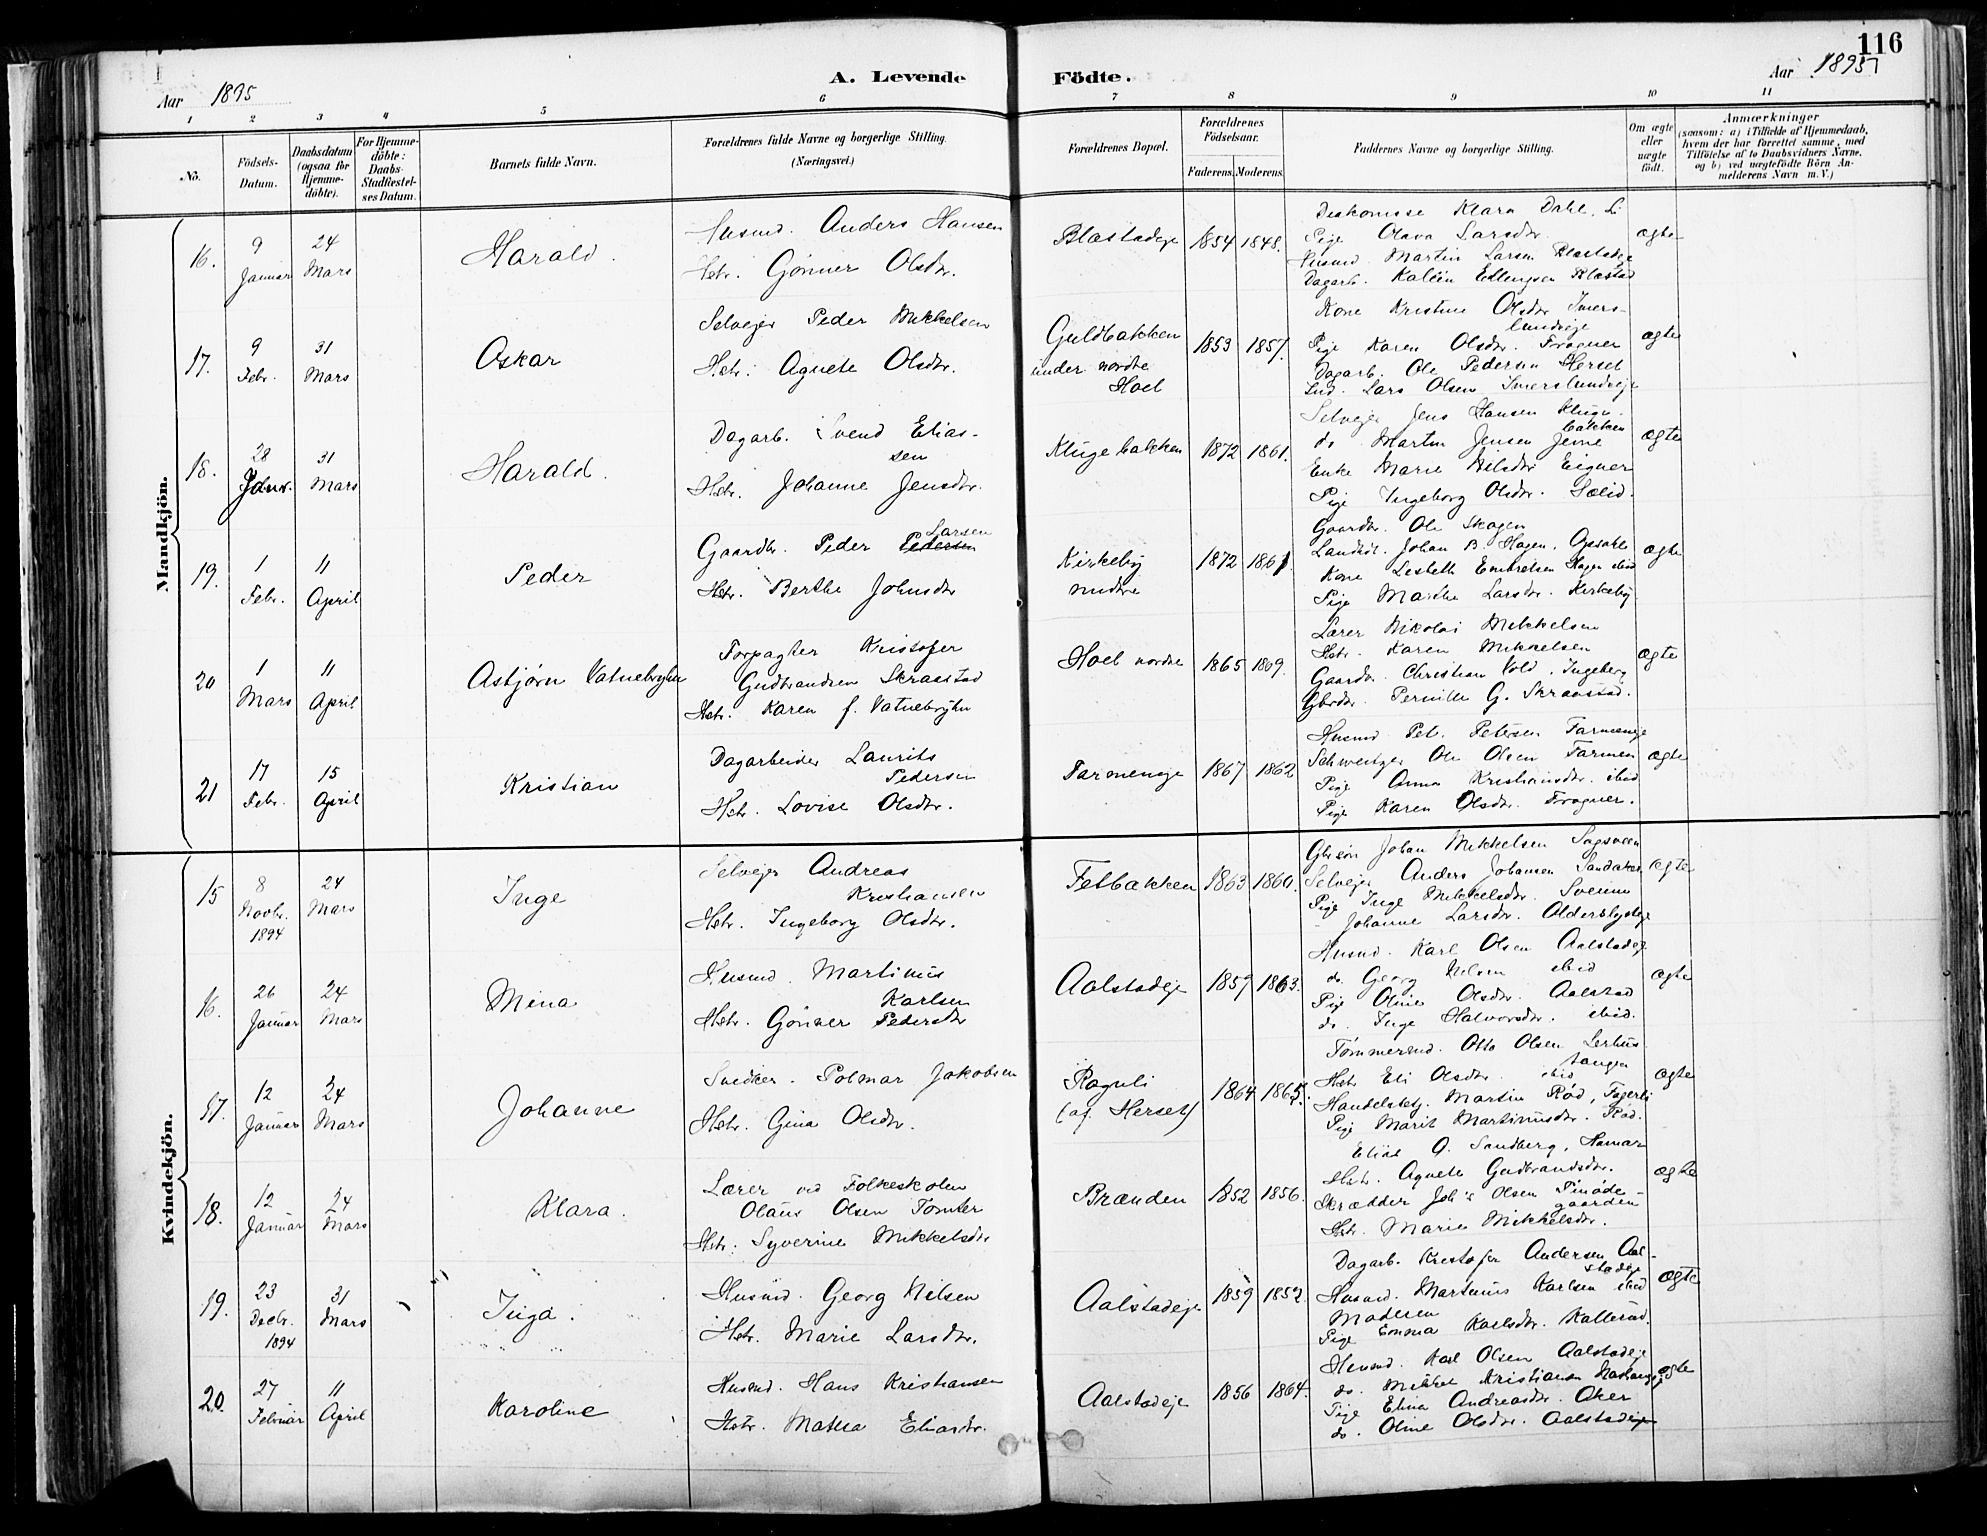 116
A. Levende Födte.
Aar 1895
Aar 1895
1 2 3 4 5 6 7 8 9 10 11
No.
Födsels-Datum.
Daabsdatum (ogsaa for Hjemme-döbte).
For Hjemme-döbte: Daabs-Stadfæstel-ses Datum.
Barnets fulde Navn.
Forældrenes fulde Navne og borgerlige Stilling. (Næringsvei.)
Forældrenes Bopæl.
Forældrenes Födselsaar.
Faderens. Moderens.
Faddernes Navne og borgerlige Stilling.
Om ægte eller uægte födt.
Anmærkninger
(saasom: a) i Tilfælde af Hjemmedaab,
hvem der har forrettet samme, med
Tilföielse af to Daabsvidners Navne,
og b) ved uægtefödte Börn An-
melderens Navn m. V.)
Mandkjön.
16. 9 Januar 24 Mars Harald.
Husmd. Anders Hansen
Hstr. Gønner Olsdtr.
Blæstadeje 1854 1848.
Diakonisse Klara Dahl,
Pige Olava Larsdtr.
Husmd. Martin Larsen Blæstadeje
Dagarb. Edlingsen Blæstad
ægte
17. 9 Febr. 31 Mars Oskar
Selvejer Peder Mikkelsen
Hstr. Agnete Olsdtr.
Guldbakken
under nordre
Hoel
1853 1857.
Kone Kristine Olsdtr Imers-
lundeje
Pige Karen Olsdtr. Frogner
Dagarb. Ole Pedersen Herset
Ind. Lars Olsen Imerslundeje
ægte
18. 28 Januar. 31 Mars Harald.
Dagarb. Svend Elias-
sen
Hstr. Johanne Jensdtr.
Klugebakken 1872 1861.
Selvejer Jens Hansen Kluge-
bakken
do. Martin Jensen
Enke Marie Nilsdtr Eigner
Pige Ingeborg Olsdtr. Sælid.
ægte
19. 1 Febr. 11 April Peder
Gaardbr. Peder Pedersen Larsen
Hstr. Berthe Johnsdtr
Kirkeby
nedre
1872 1861.
Gaardbr. Ole Skagen
Johan B. Hagen, Opsahl
Kone Lisbeth Embretsen Hagen ibid
Pige Marthe Larsdtr. Kirkeby
ægte
20 1 Mars 11 April Asbjørn Vatnebryhn
Forpagter Kristofer
Gudbrandsen Skraastad
Hstr. Karen f. Vatnebryhn
Hoel nordre 1865 1869.
Lærer Nikolai Mikkelsen
Hstr. Karen Mikkelsen
Gaardbr. Christian Vold, Ingeberg
Gbrdtr. Pernille G. Skraastad.
ægte
21 17 Febr. 15 April Kristian
Dagarbeider Laurits
Pedersen
Hstr. Lovise Olsdtr.
Farmeneje 1867 1862
Husmd. Petersen Farmeneje
Schweitzer Ole Olsen Farmen
Pige Anna Kristiansdtr. ibid
Pige Karen Olsdtr. Frogner.
ægte
Kvindekjön.
15 8 Novbr. 1894 24 Mars Inge
Selvejer Andreas
Kristiansen
Hstr. Ingeborg Olsdtr.
Fetbakken 1863 1860.
Gbrsøn Johan Mikkelsen Sagsveen
Selvejer Anders Johansen Sandaker
Pige Inge Mikkelsdtr. Sveum
" Johanne Larsdtr.
ægte
16. 26 Januar 24 Mars Mina
Husmd. Martinus
Karlsen
Hstr. Gønner Pedersdtr
Aalstadeje 1859 1863.
Husmd. Karl Olsen Aalstadeje
do. Georg Nilsen ibid
Pige Oline Olsdtr. Aalstad
do. Inge Halvorsdtr. ibid.
ægte
17. 12 Januar 24 Mars Johanne
Snedker. Polmar Jakobsen
Hstr. Gina Olsdtr.
Rognli
(af Herset)
1864 1865.
Tømmermd. Otto Olsen Lerhus
tangen
Hstr Eli Olsdtr. ibid
Handelsbetj. Martin Rød, Fagerli
Pige Marit Martinusdtr. Rød.
ægte
18. 12 Januar 24 Mars Klara.
Lærer ved Folkeskolen
Olaus Olsen Tomter
Hstr. Syverine Mikkelsdtr.
Brænden 1852 1856.
Elias G. Sandberg, Hamar
Hstr. Agnete Gudbrandsdtr.
Skrædder Joh's Olsen
gaarden
Hstr. Marie Mikkelsdtr.
ægte
19. 23 Decbr. 1894 31 Mars Inga.
Husmd. Georg Nilsen
Hstr. Marie Larsdtr.
Aalstadeje 1859 1852.
Dagarb. Kristofer Andersen Aal-
stadeje
Husmd. Martinus Karlsen ibid
Moderen
Pige Emma Karlsdtr. Kallerud.
ægte
20. 27 Februar 11 April Karoline
Husmd. Hans Kristiansen
Hstr. Mathea Eliasdtr.
Aalstadeje 1856 1864.
Husmd. Karl Olsen Aalstadeje
do. Mikkel Kristiansen
Pige Elina Andreasdtr. Aker
do. Oline Olsdtr. Aalstadeje
ægte